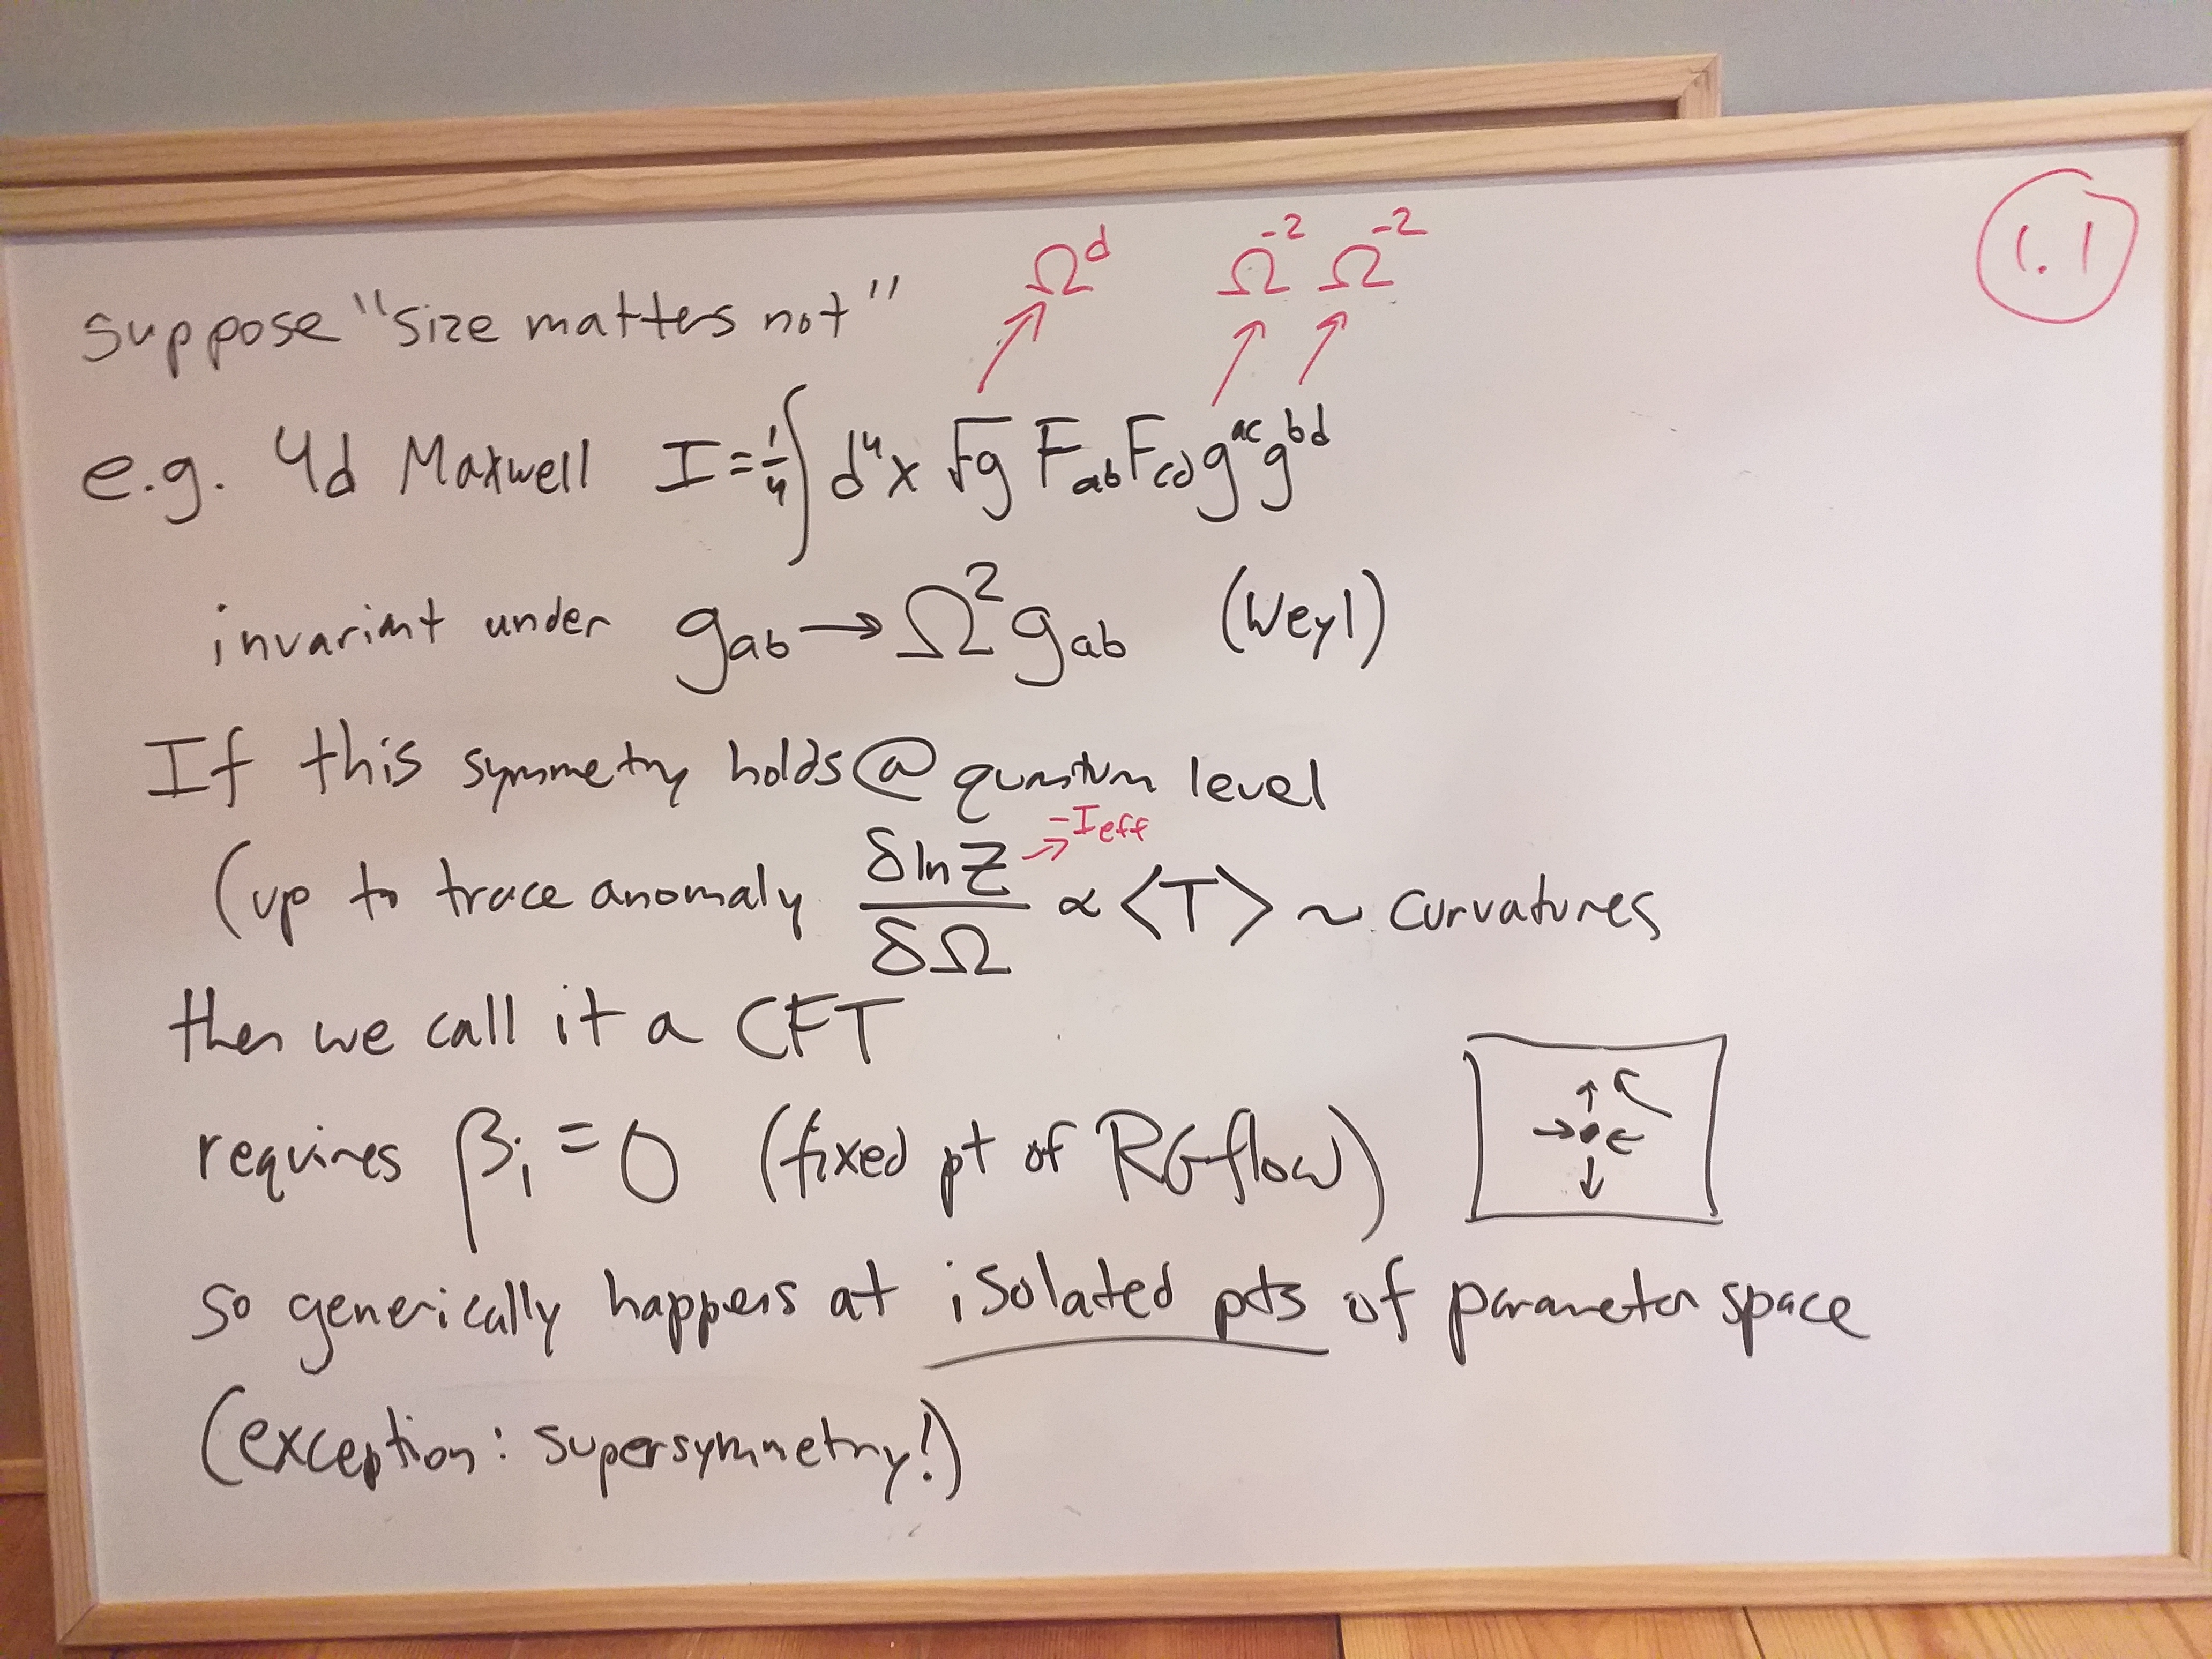 1.1
Ω^d Ω^-2 Ω^-2
suppose "size matters not"
e.g. 4d Maxwell I = 1/4 ∫ d⁴x √g F_ab F_cd g^ac g^bd
invariant under g_ab → Ω² g_ab (Weyl)
If this symmetry holds @ quantum level
-I_eff
(up to trace anomaly δ ln Z / δΩ ∝ <T> ~ curvatures
then we call it a CFT
requires β_i = 0 (fixed pt of RG flow)
so generically happens at isolated pts of parameter space
(exception: supersymmetry!)